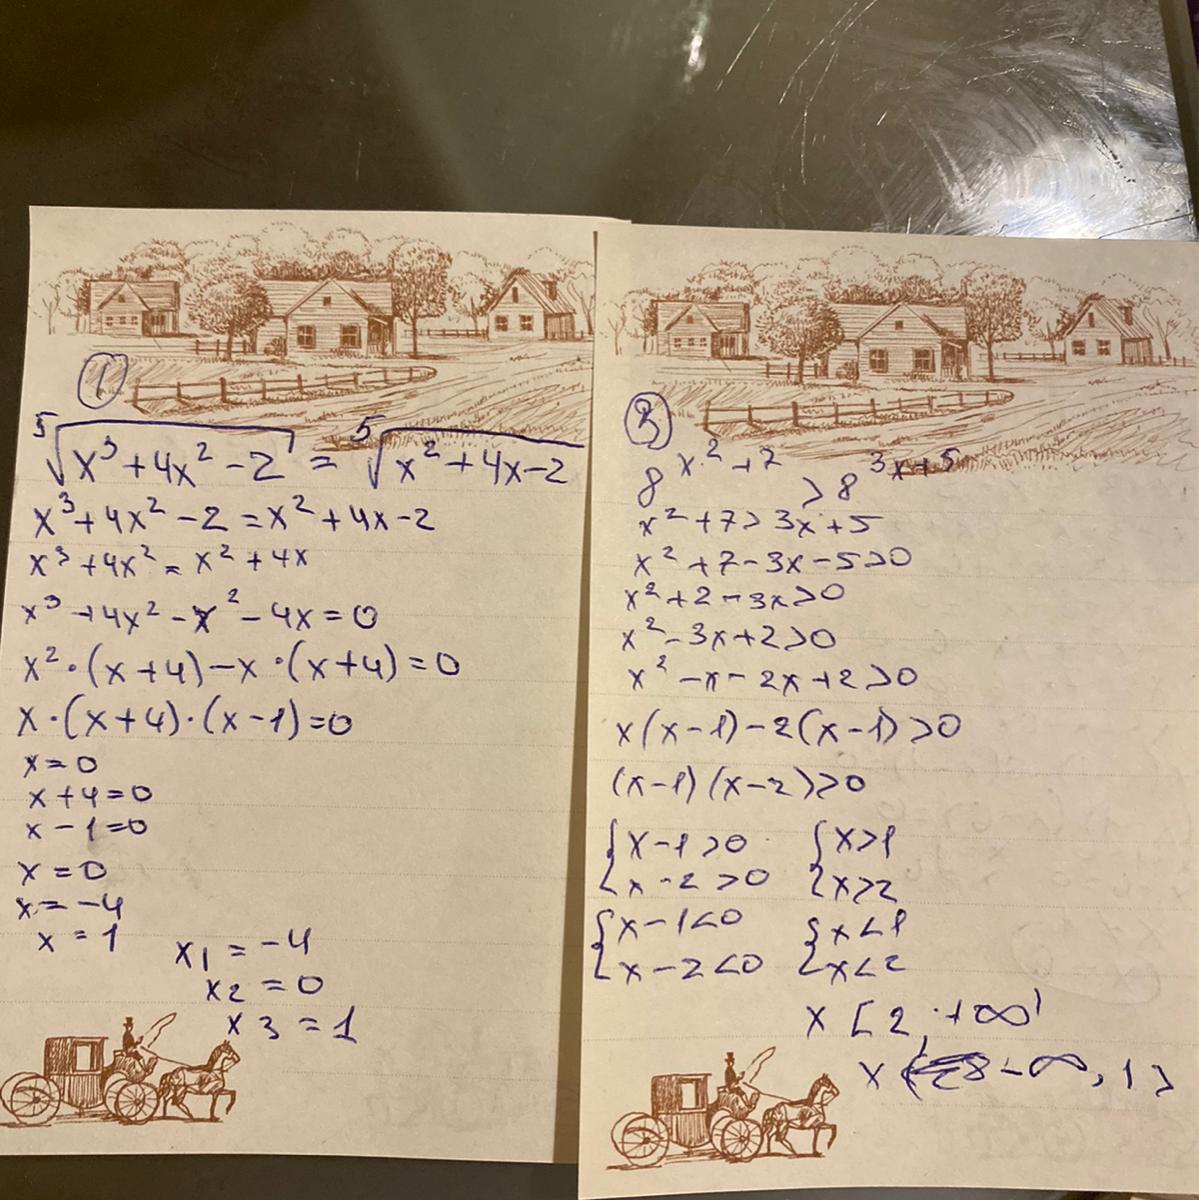 1
⁵√(x³+4x²-2) = ⁵√(x²+4x-2)
x³+4x²-2=x²+4x-2
x³+4x²=x²+4x
x³+4x²-x²-4x=0
x²·(x+4)-x·(x+4)=0
x·(x+4)·(x-1)=0
x=0
x+4=0
x-1=0
x=0
x=-4
x=1
x1=-4
x2=0
x3=1
3
8^(x²+7) > 8^(3x+5)
x²+7>3x+5
x²+7-3x-5>0
x²+2-3x>0
x²-3x+2>0
x²-x-2x+2>0
x(x-1)-2(x-1)>0
(x-1)(x-2)>0
{x-1>0 {x>1
x-2>0 x>2
{x-1<0 {x<1
x-2<0 x<2
x[2,+∞)
x -∞,1>